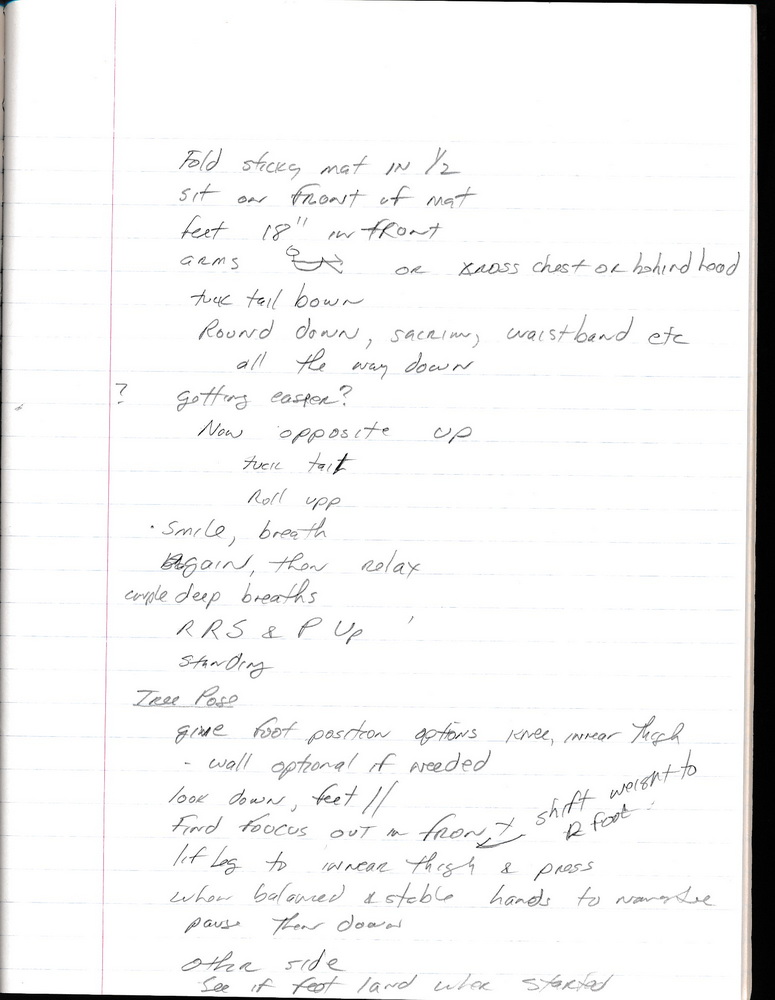 Fold sticky mat IN 1/2
sit on front of mat
feet 18" in front
arms or xross chest or behind hood
tuck tail bown
Round down, sacrim, waistband etc
all the way down
? getting easper?
Now opposite up
tuck tait
Roll upp
· smile, breath
Again, then relax
couple deep breaths
R R S & P Up
standing
Tree Pose
give foot position options knee, innear thigh
- wall optional if needed
look down, feet //
shift weight to
R foot
Find foucus out in front
lif leg to innear thigh & press
when balanced & stable hands to
pause then down
other side
see if feet land wher started